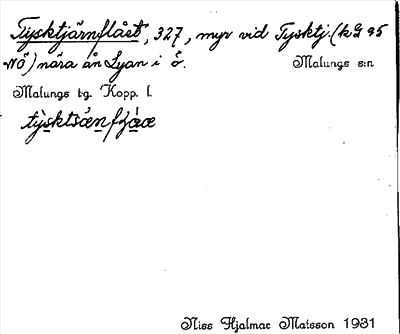 Tysktjärnflået, 327, myr vid Tysktj. (kG 95
NÖ) nära ån Lyan i ö.
Malungs s:n
Malungs tg. Kopp. l.
Niss Hjalmar Matsson 1931